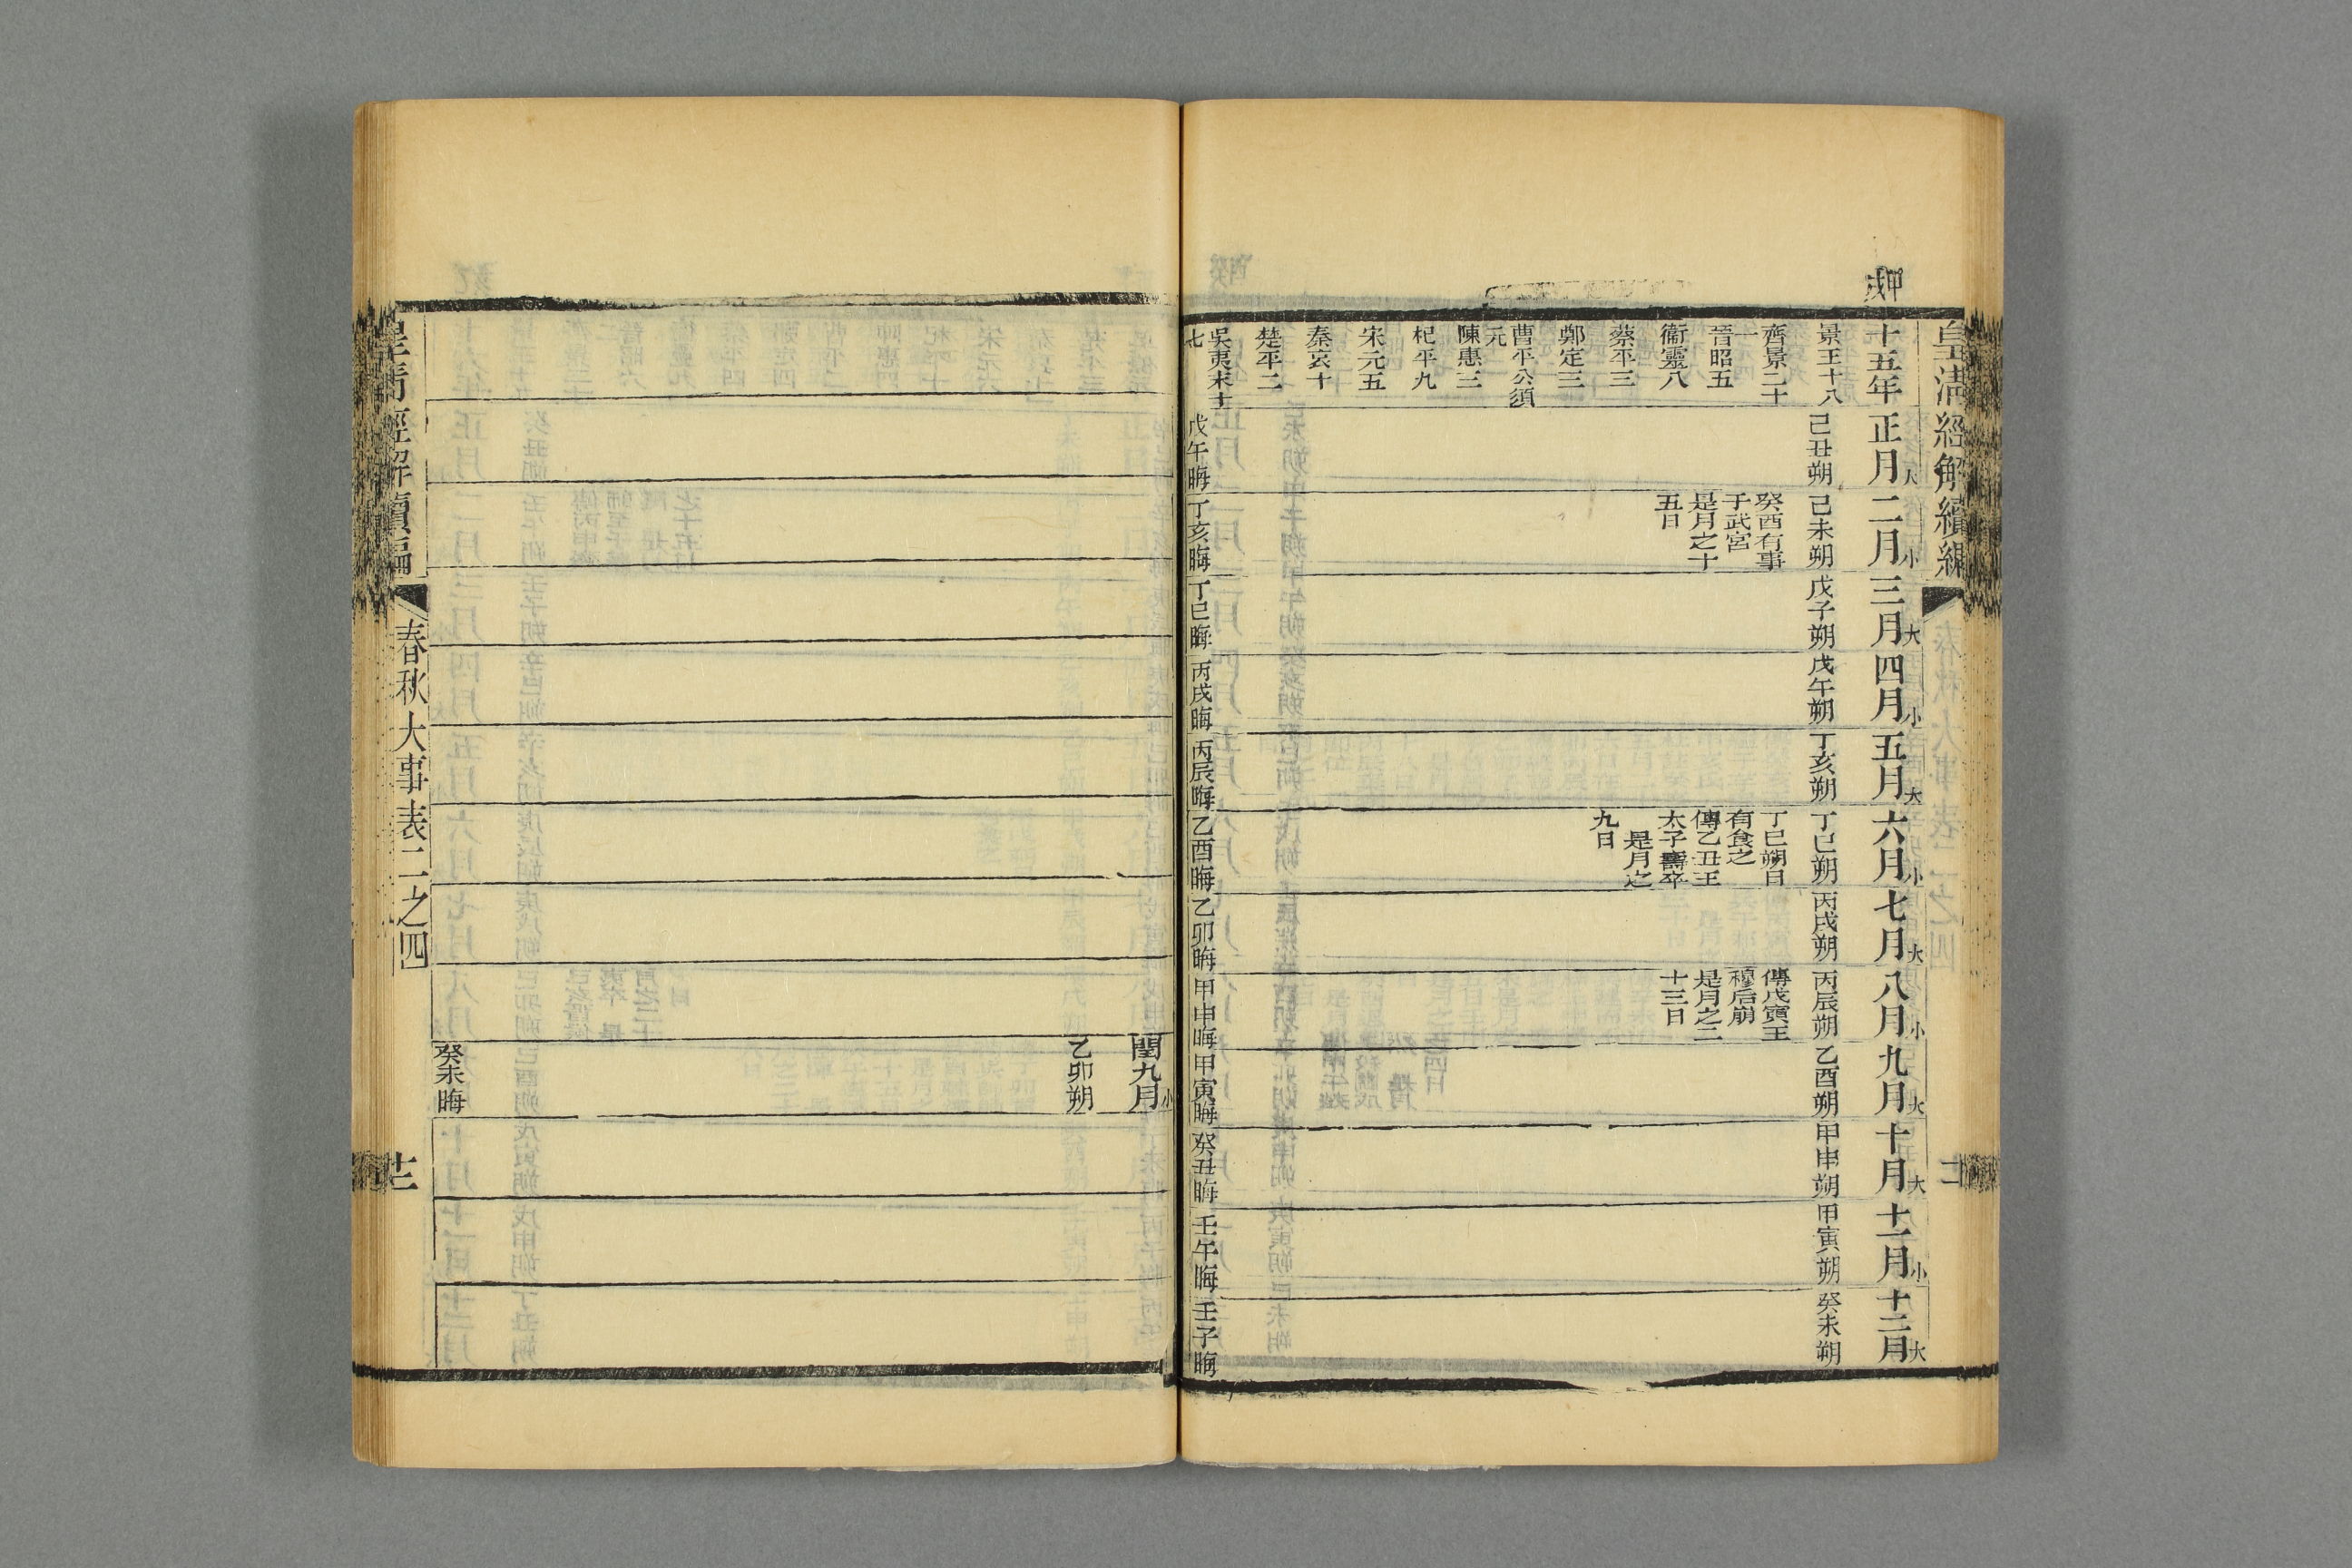 皇清經解續編
甲戌
十五年
正月大
二月小
三月大
四月小
五月大
六月小
七月大
八月小
九月大
十月大
十一月小
十二月大
景王十八
己丑朔
己未朔
戊子朔
戊午朔
丁亥朔
丁巳朔
丙戌朔
丙辰朔
乙酉朔
甲申朔
甲寅朔
癸未朔
齊景二十
一
晉昭五
衞靈八
蔡平三
鄭定三
曹平公須
元
陳惠三
杞平九
宋元五
秦哀十
楚平二
吳夷末十
七
癸酉有事
于武宮
是月之十
五日
丁巳朔日
有食之
傳乙丑王
太子壽卒
是月之
九日
傳戊寅王
穆后崩
是月之二
十三日
戊午晦
丁亥晦
丁巳晦
丙戌晦
丙辰晦
乙酉晦
乙卯晦
甲申晦
甲寅晦
癸丑晦
壬午晦
壬子晦
閏九月小
乙卯朔
癸未晦
皇清經解續編
春秋大事表二之四